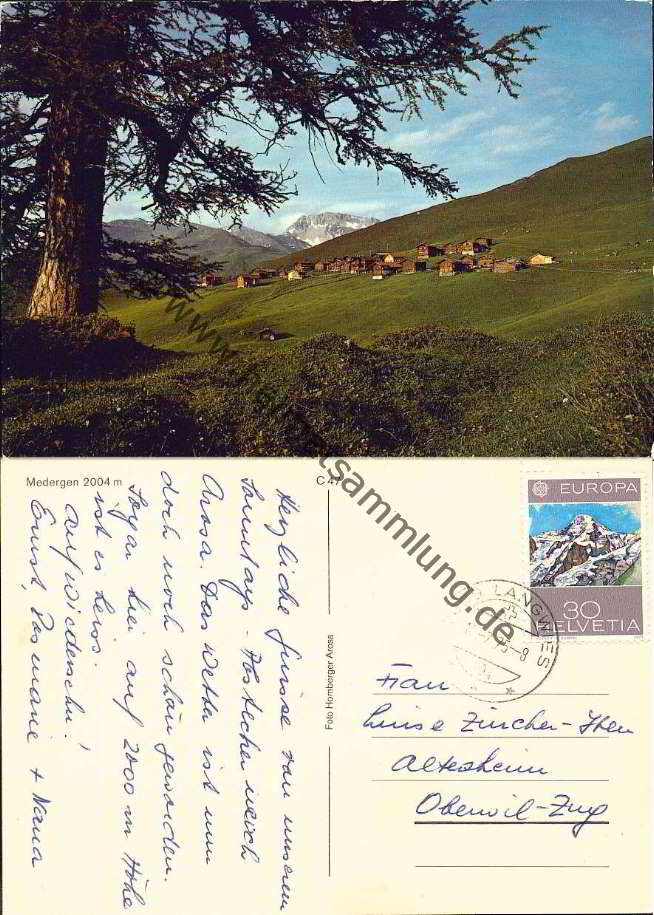 Medergen 2004 m
C 47
Herzliche Grüsse von unserem
Sonntags-
Arosa. Das Wetter ist nun
doch noch schön geworden.
Sogar hier auf 2000 m Höhe
ist es heiss.
auf Wiedersehn!
Ernst, Rosmarie + Nana
Foto Homberger Arosa
EUROPA
30
HELVETIA
LANGWIES
Frau
Luise Zürcher-Iten
Altersheim
Oberwil-Zug
www.
ansichtskartensammlung.de